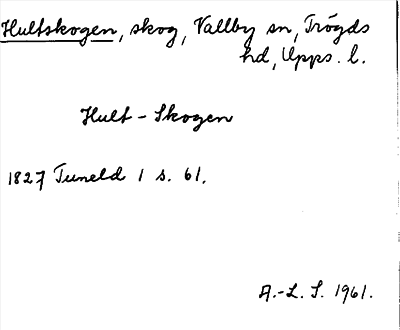 Hultskogen, skog, Vallby sn, Trögds
hd, Upps. l.
Hult-Skogen
1827 Tuneld 1 s. 61.
A.-L. S. 1961.